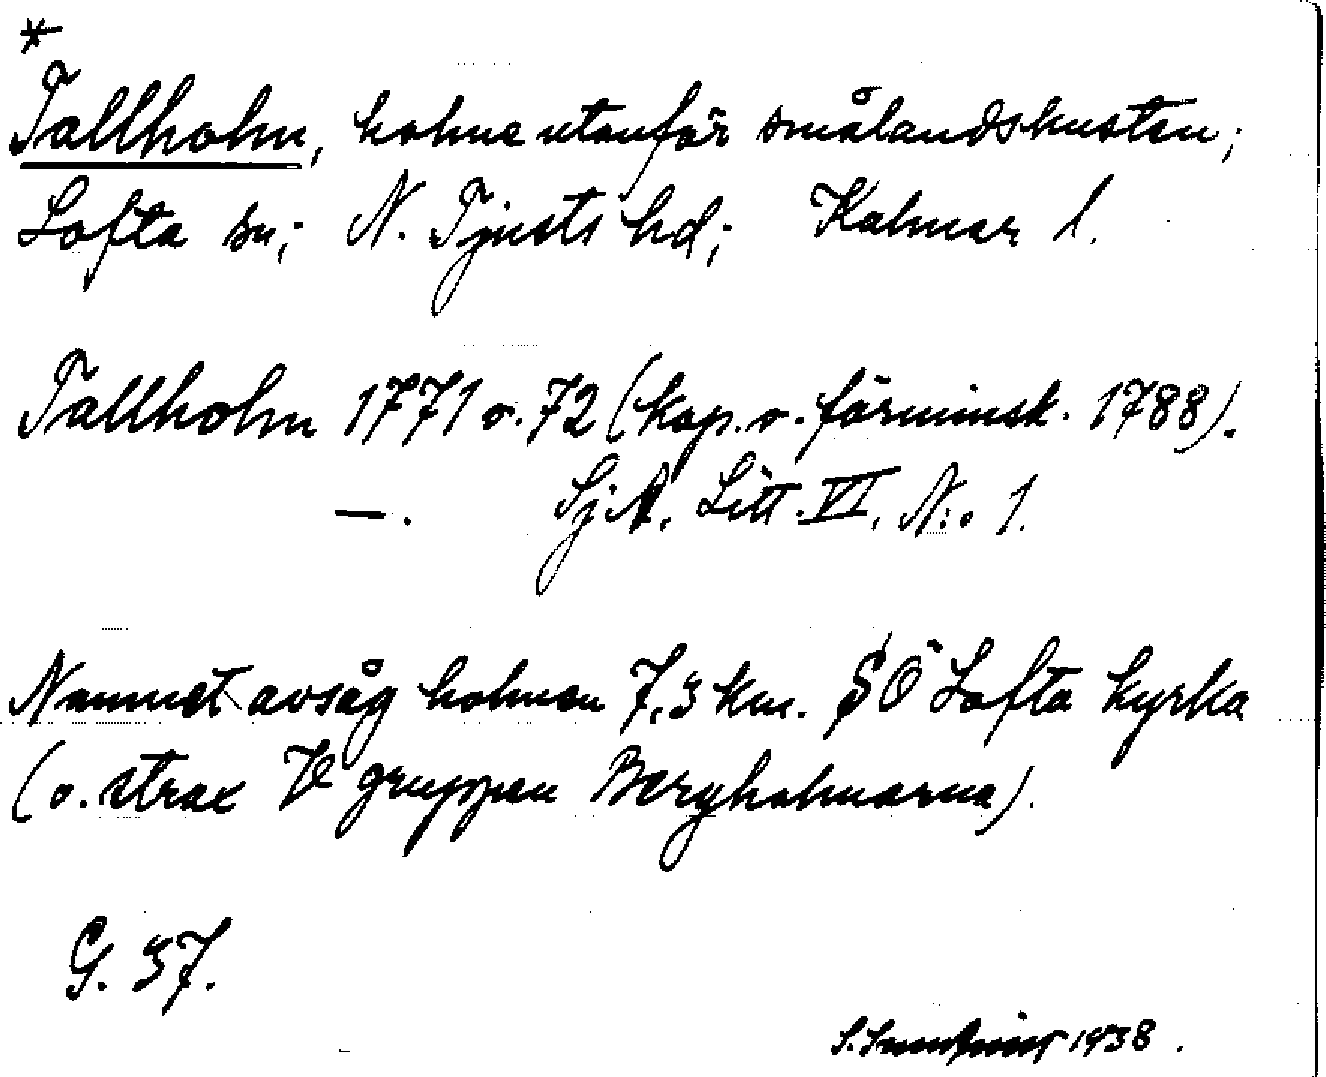 *
Tallholm, holme utanför smålandskusten;
Lofta sn; N. Tjusts hd; Kalmar l.
Tallholm 1771 o. 72 (kop. o. förminsk. 1788).
—. SjA, Litt. VI, N:o 1.
Namnet avsåg holmen 7,3 km. SÖ Lofta kyrka
(o. strax V gruppen Bergholmarna).
G. 37.
S. 1938.